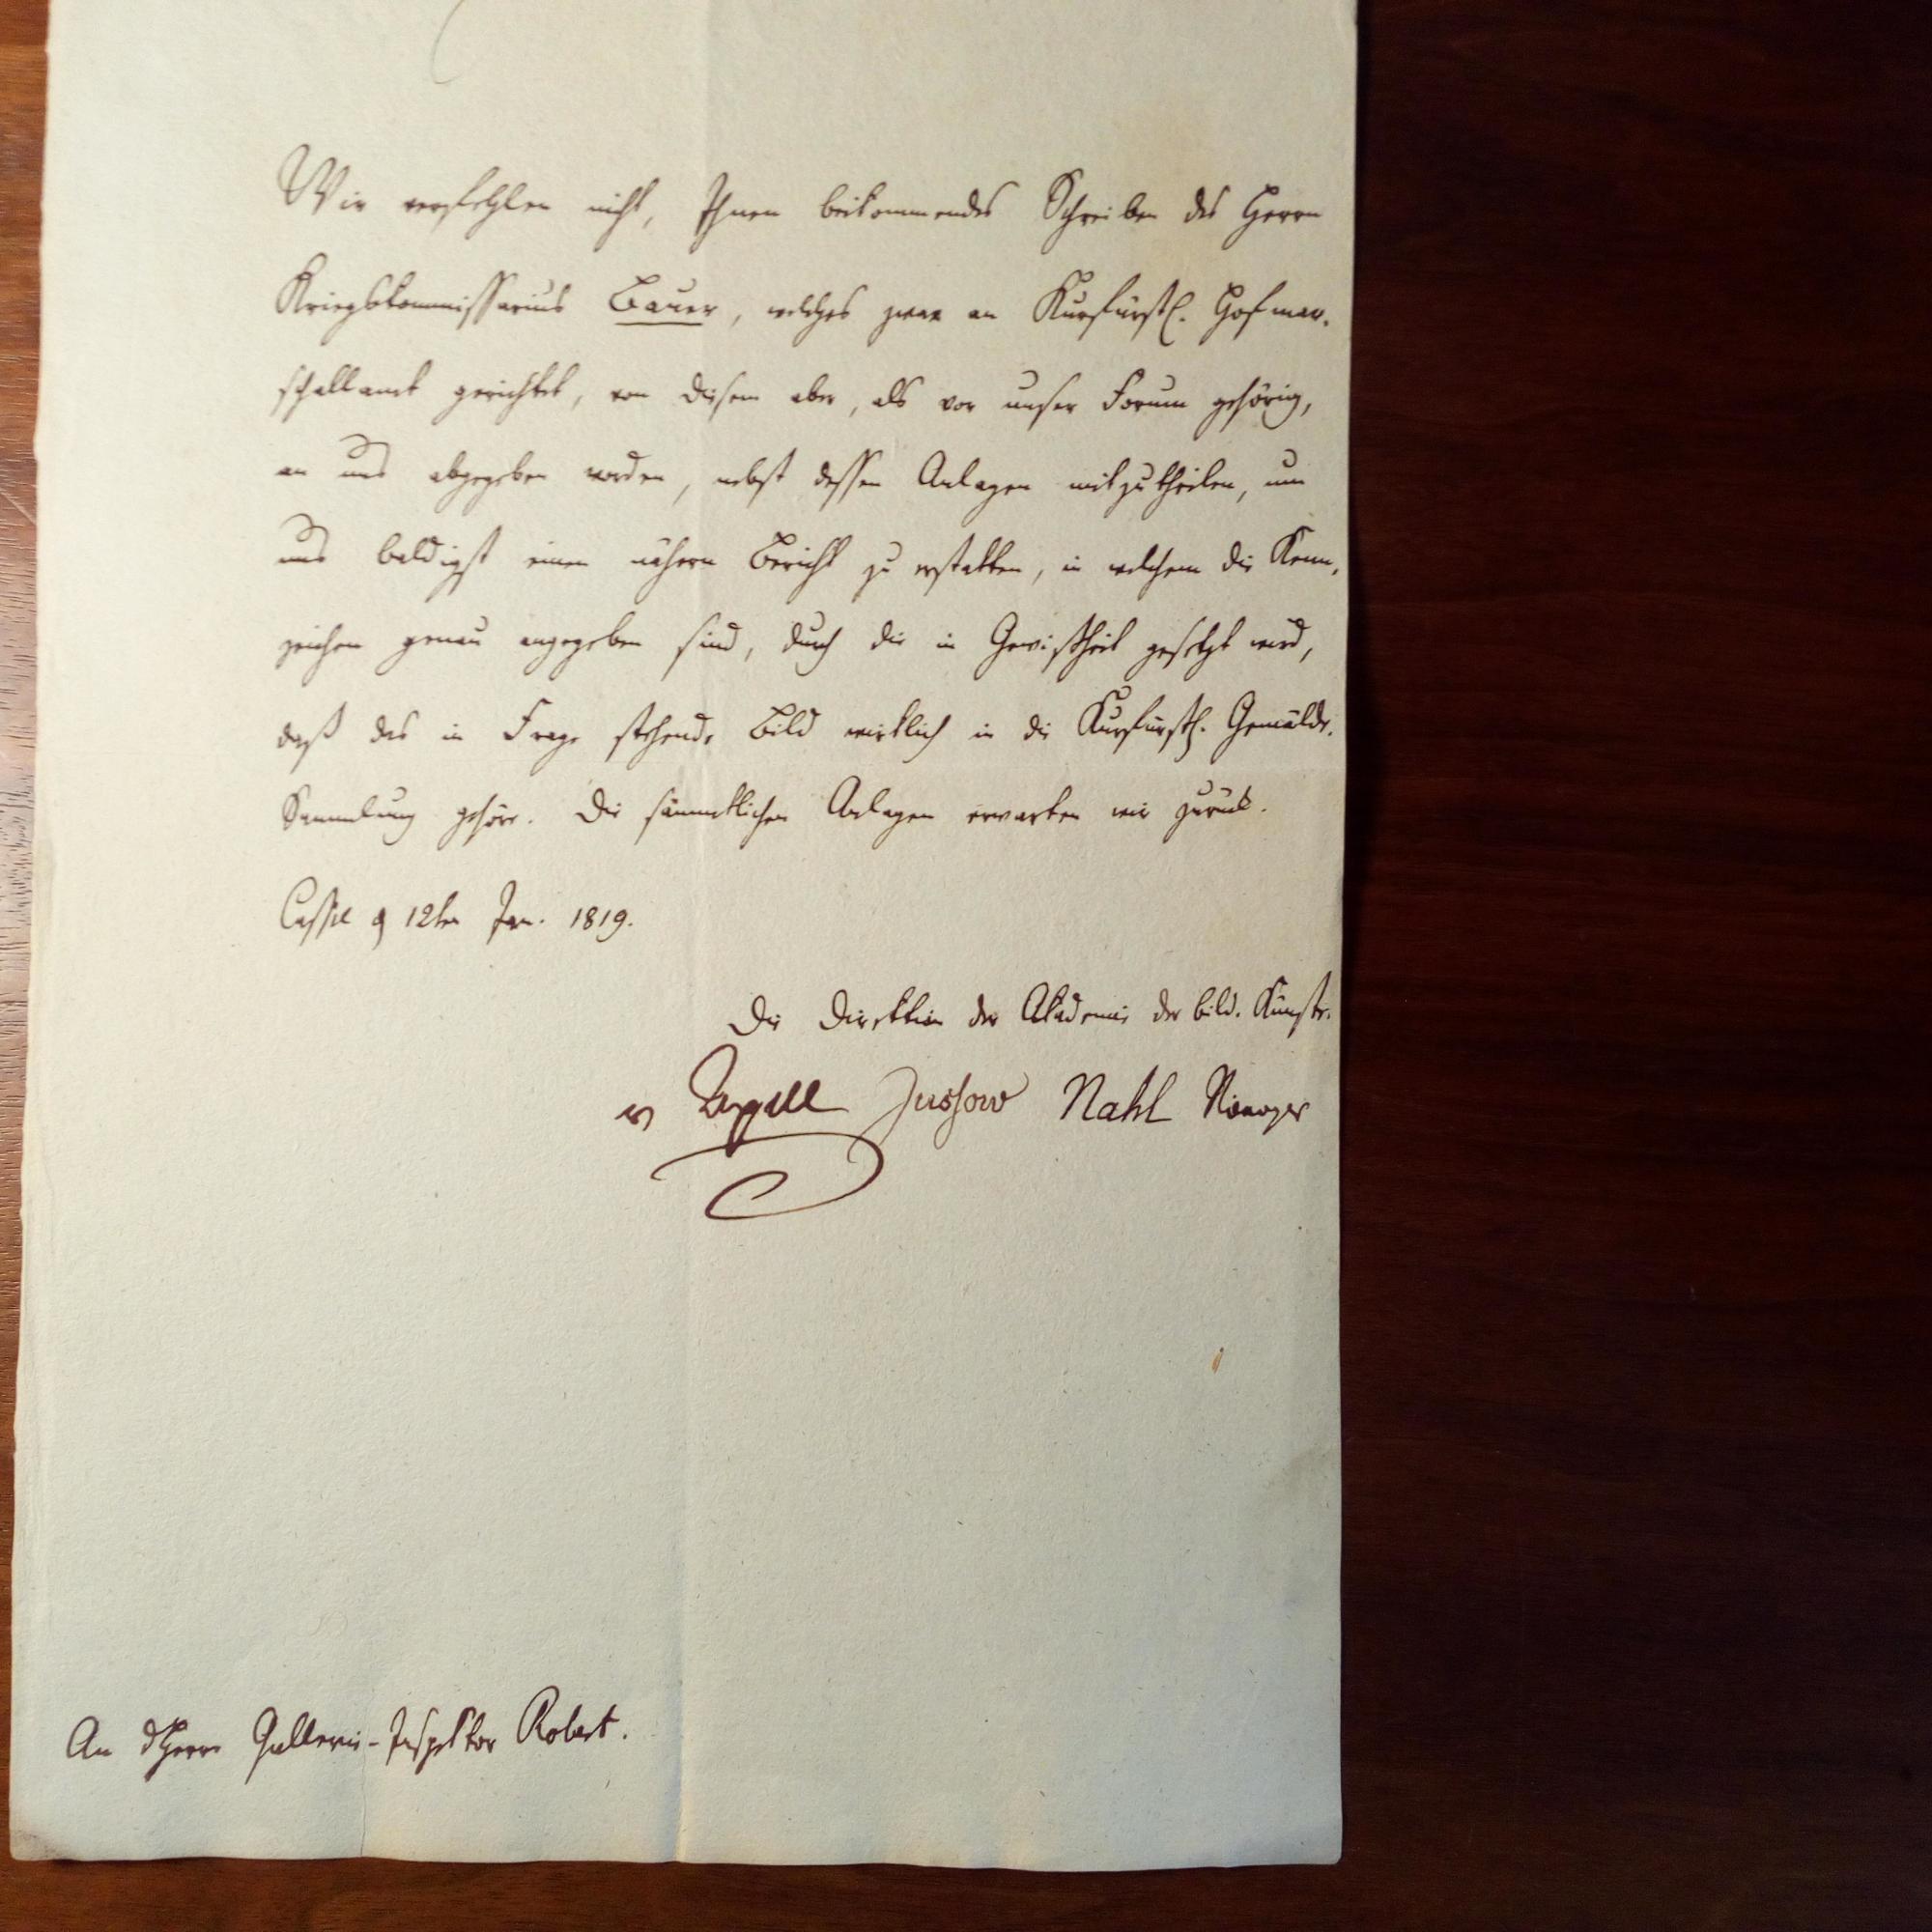 Wir verfehlen nicht, Ihnen beikommendes Schreiben des Herrn
Kriegskommissarius Bauer, welches zwar an Kurfürstl. Hofmar-
schallamt gerichtet, von diesem aber, als vor unser Forum gehörig,
an uns abgegeben worden, nebst dessen Anlagen mitzutheilen, um
uns baldigst einen nähern Bericht zu erstatten, in welchem die Kenn-
zeichen genau angegeben sind, durch die in Gewißheit gesetzt wird,
daß das in Frage stehende Bild wirklich in die Kurfürstl. Gemälde-
Sammlung gehöre. Die sämmtlichen Anlagen erwarten wir zurück.
Cassel d 12ten Jan. 1819.
Die Direktion der Akademie der bild. Künste.
v Appell Jussow Nahl
An dHerrn Gallerie-Inspektor Robert.